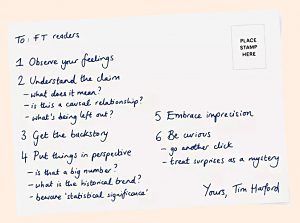 To: FT readers
PLACE
STAMP
HERE
1 Observe your feelings
2 Understand the claim
- what does it mean?
- is this a causal relationship?
- what's being left out?
3 Get the backstory
4 Put things in perspective
- is that a big number?
- what is the historical trend?
- beware 'statistical significance'
5 Embrace imprecision
6 Be curious
- go another click
- treat surprises as a mystery
Yours, Tim Harford